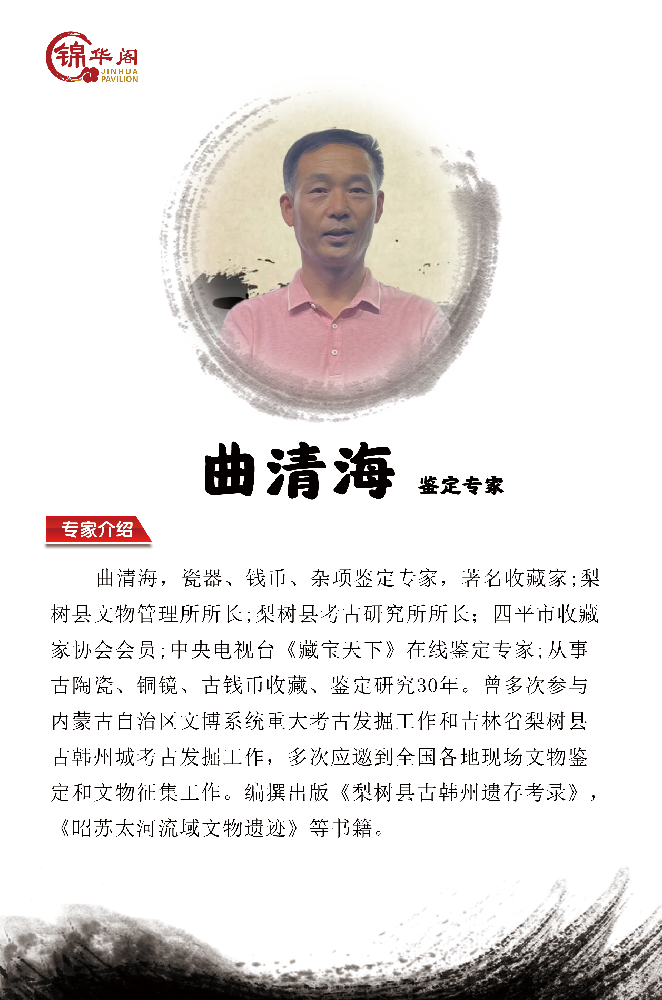 锦华阁
JINHUA
PAVILION
曲清海 鉴定专家
专家介绍
曲清海，瓷器、钱币、杂项鉴定专家，著名收藏家;梨
树县文物管理所所长;梨树县考古研究所所长；四平市收藏
家协会会员;中央电视台《藏宝天下》在线鉴定专家;从事
古陶瓷、铜镜、古钱币收藏、鉴定研究30年。曾多次参与
内蒙古自治区文博系统重大考古发掘工作和吉林省梨树县
古韩州城考古发掘工作，多次应邀到全国各地现场文物鉴
定和文物征集工作。编撰出版《梨树县古韩州遗存考录》，
《昭苏太河流域文物遗迹》等书籍。